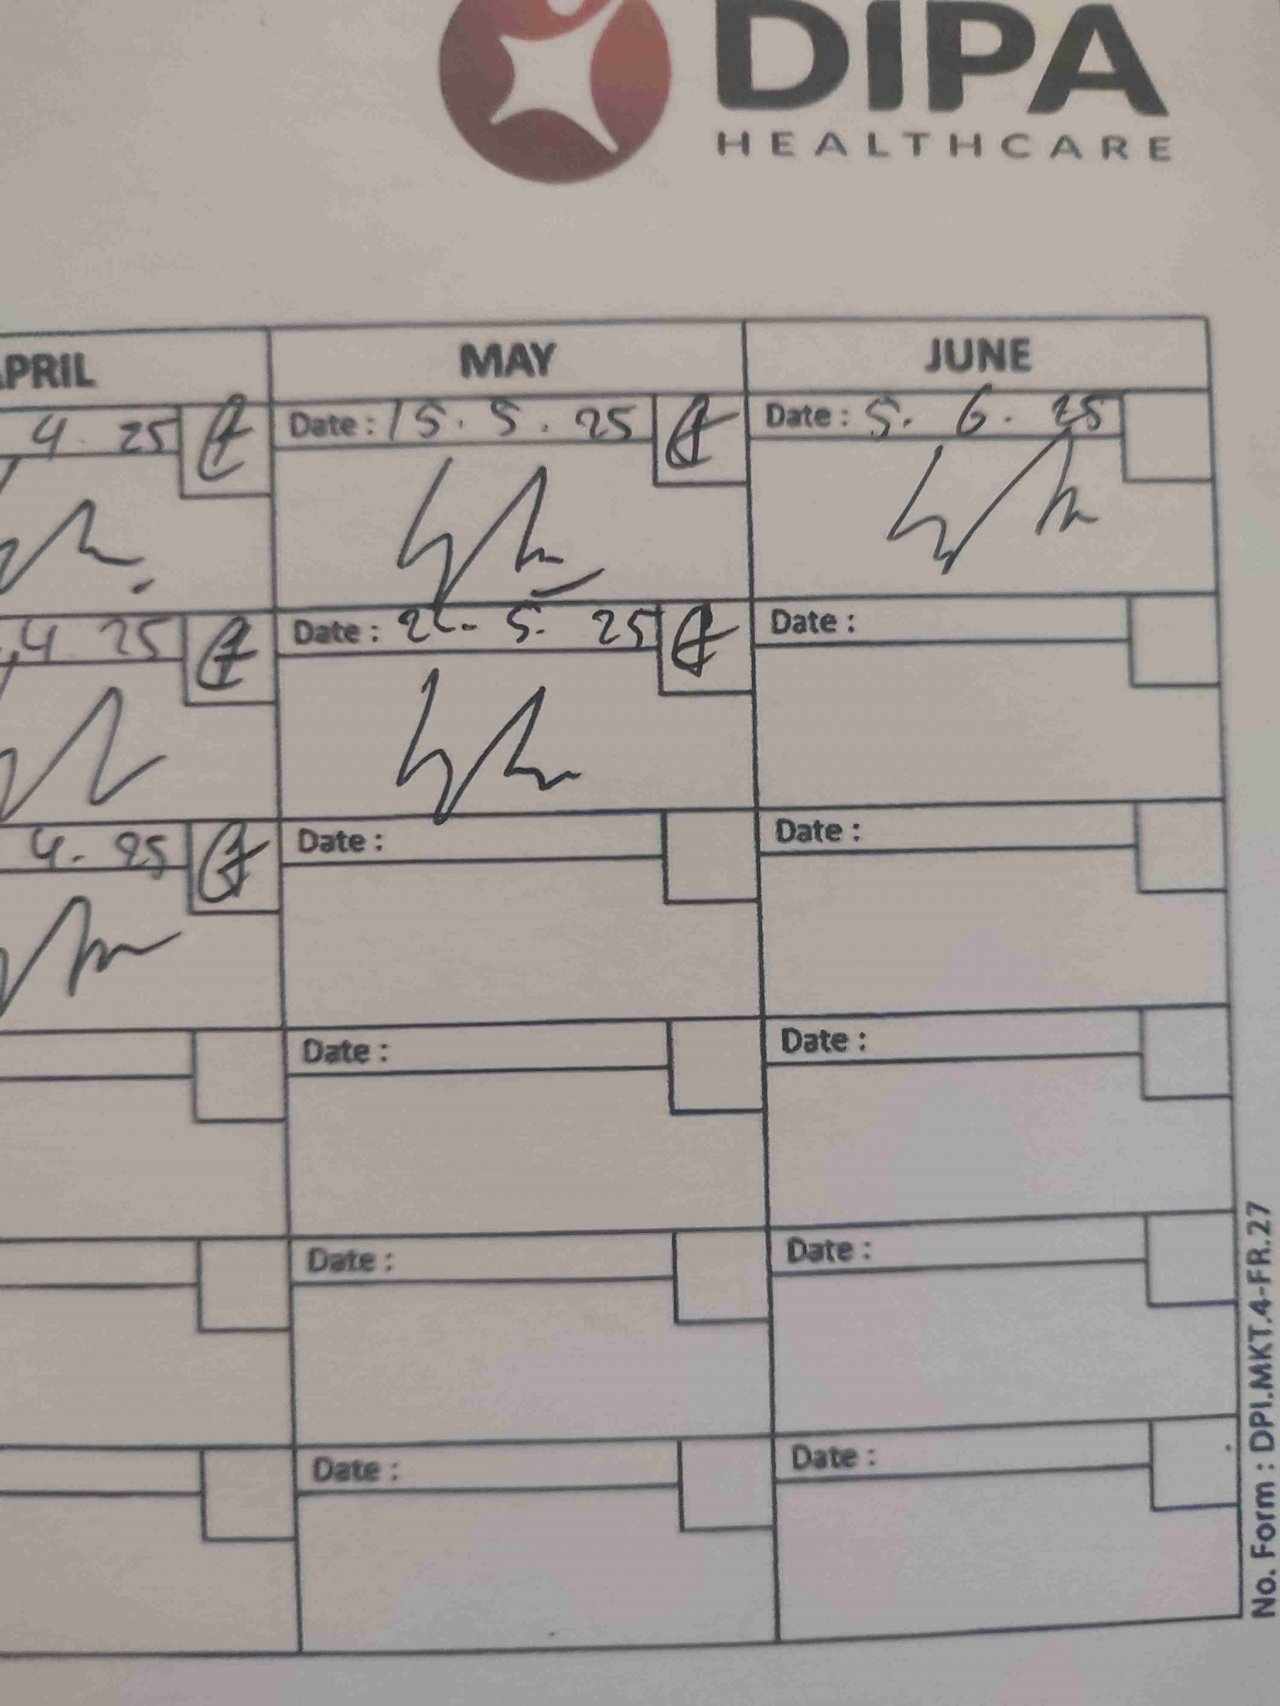 DIPA
HEALTHCARE
APRIL MAY JUNE
4. 25 Date : 15. 5. 25 Date : 5. 6. 25
4 25 Date : 5. 25 Date :
4. 25 Date : Date :
Date : Date :
Date : Date :
Date : Date :
No. Form : DPI.MKT.4-FR.27